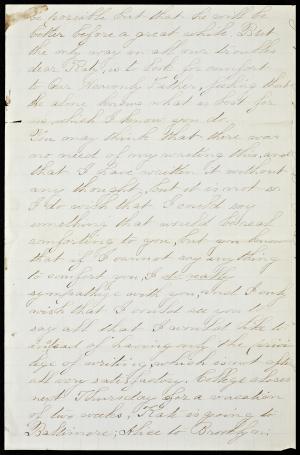 be possible but that he will be
better before a great while. But
the only way in all our troubles
dear Kate, is to look for comfort
to our Heavenly Father, feeling that
He alone knows what is best for
us, which I know you do.
You may think that there was
no need of my writing this, and
that I have written it without
any thought, but it is not so.
I do wish that I could say
something that would be real
comforting to you, but you know
that if I cannot say anything
to comfort you, I do really
sympathize with you, and I only
wish that I could see you to
say all that I would like to
instead of having only the privi-
lege of writing, which is not after
all very satisfactory. College closes
next Thursday for a vacation
of two weeks, Kate is going to
Baltimore; Alice to Brooklyn;